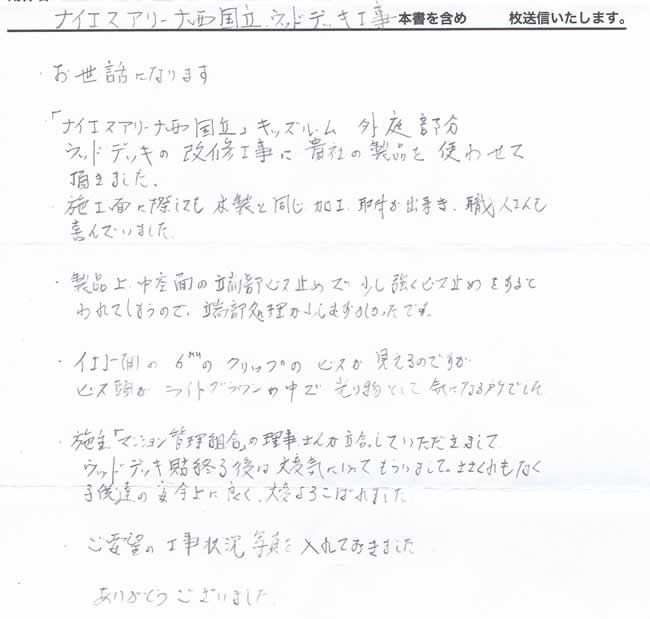 ナイエスアリーナ西国立 ウッドデッキ工事 本書を含め 枚送信いたします。
・お世話になります
「ナイエスアリーナ西国立」キッズルーム 外庭部分
ウッドデッキの改修工事に貴社の製品を使わせて
頂きました。
・施工面に際しても木製と同じ加工、取付が出来き、職人さんも
喜んでいました。
・製品上、中空面の端部ビス止めで少し強くビス止めをすると
われてしまうので、端部処理が少しむずかしかったです。
・イ 間の6mmのクリップのビスが見えるのですが
ビス頭がライトブラウンの中で光り物として気になる でした
・施主「マンション管理組合」の理事さんが立合していただきまして
ウッドデッキ 終了後は大変気にいってもらいまして。ささくれもなく
子供達の安全上に良く、大変よろこばれました。
・ご要望の工事状況写真を入れておきました
ありがとうございました。